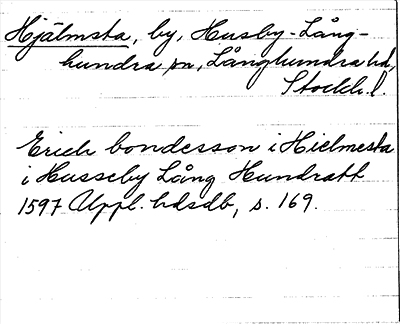 Hjälmsta, by, Husby-Lång-
hundra sn, Långhundra hd,
Stockh. l.
Erich bondesson i Hielmesta
i Husseby Lång Hundratt
1597 Uppl. hdsdb, s. 169.